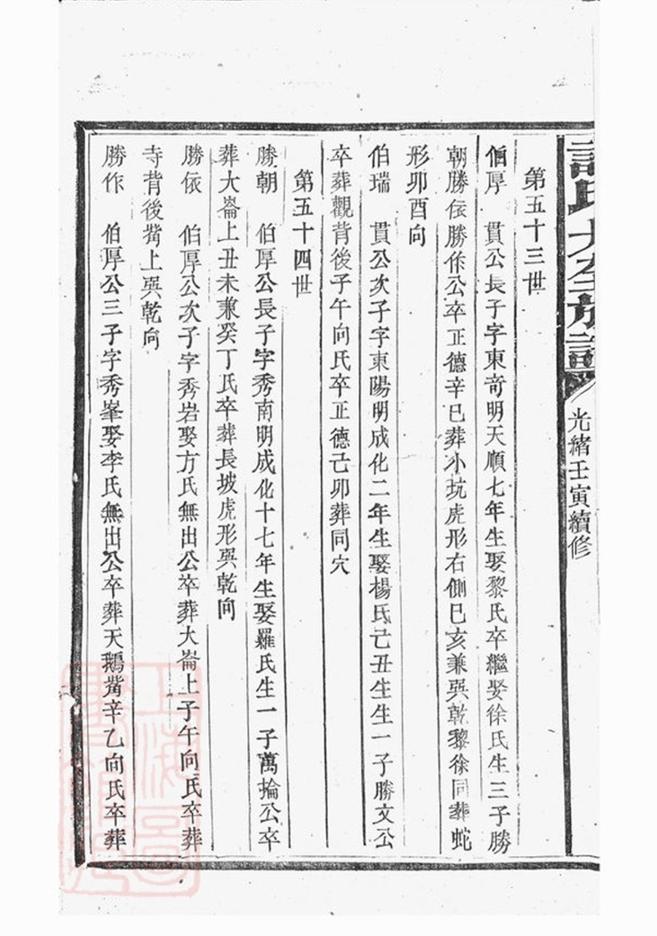 氏大全族譜 光緒壬寅續修
第五十三世
伯厚 貫公長子字東奇明天順七年生娶黎氏卒繼娶徐氏生三子勝
朝勝依勝作公卒正德辛巳葬小坑虎形右側巳亥兼巽乾黎徐同葬蛇
形卯酉向
伯瑞 貫公次子字東陽明成化二年生娶楊氏己丑生生一子勝文公
卒葬觀背後子午向氏卒正德己卯葬同穴
第五十四世
勝朝 伯厚公長子字秀南明成化十七年生娶羅氏生一子萬掄公卒
葬大崙上丑未兼癸丁氏卒葬長坡虎形巽乾向
勝依 伯厚公次子字秀岩娶方氏無出公卒葬大崙上子午向氏卒葬
寺背後嘴上巽乾向
勝作 伯厚公三子字秀峯娶李氏無出公卒葬天鵝嘴辛乙向氏卒葬
上海圖書館藏